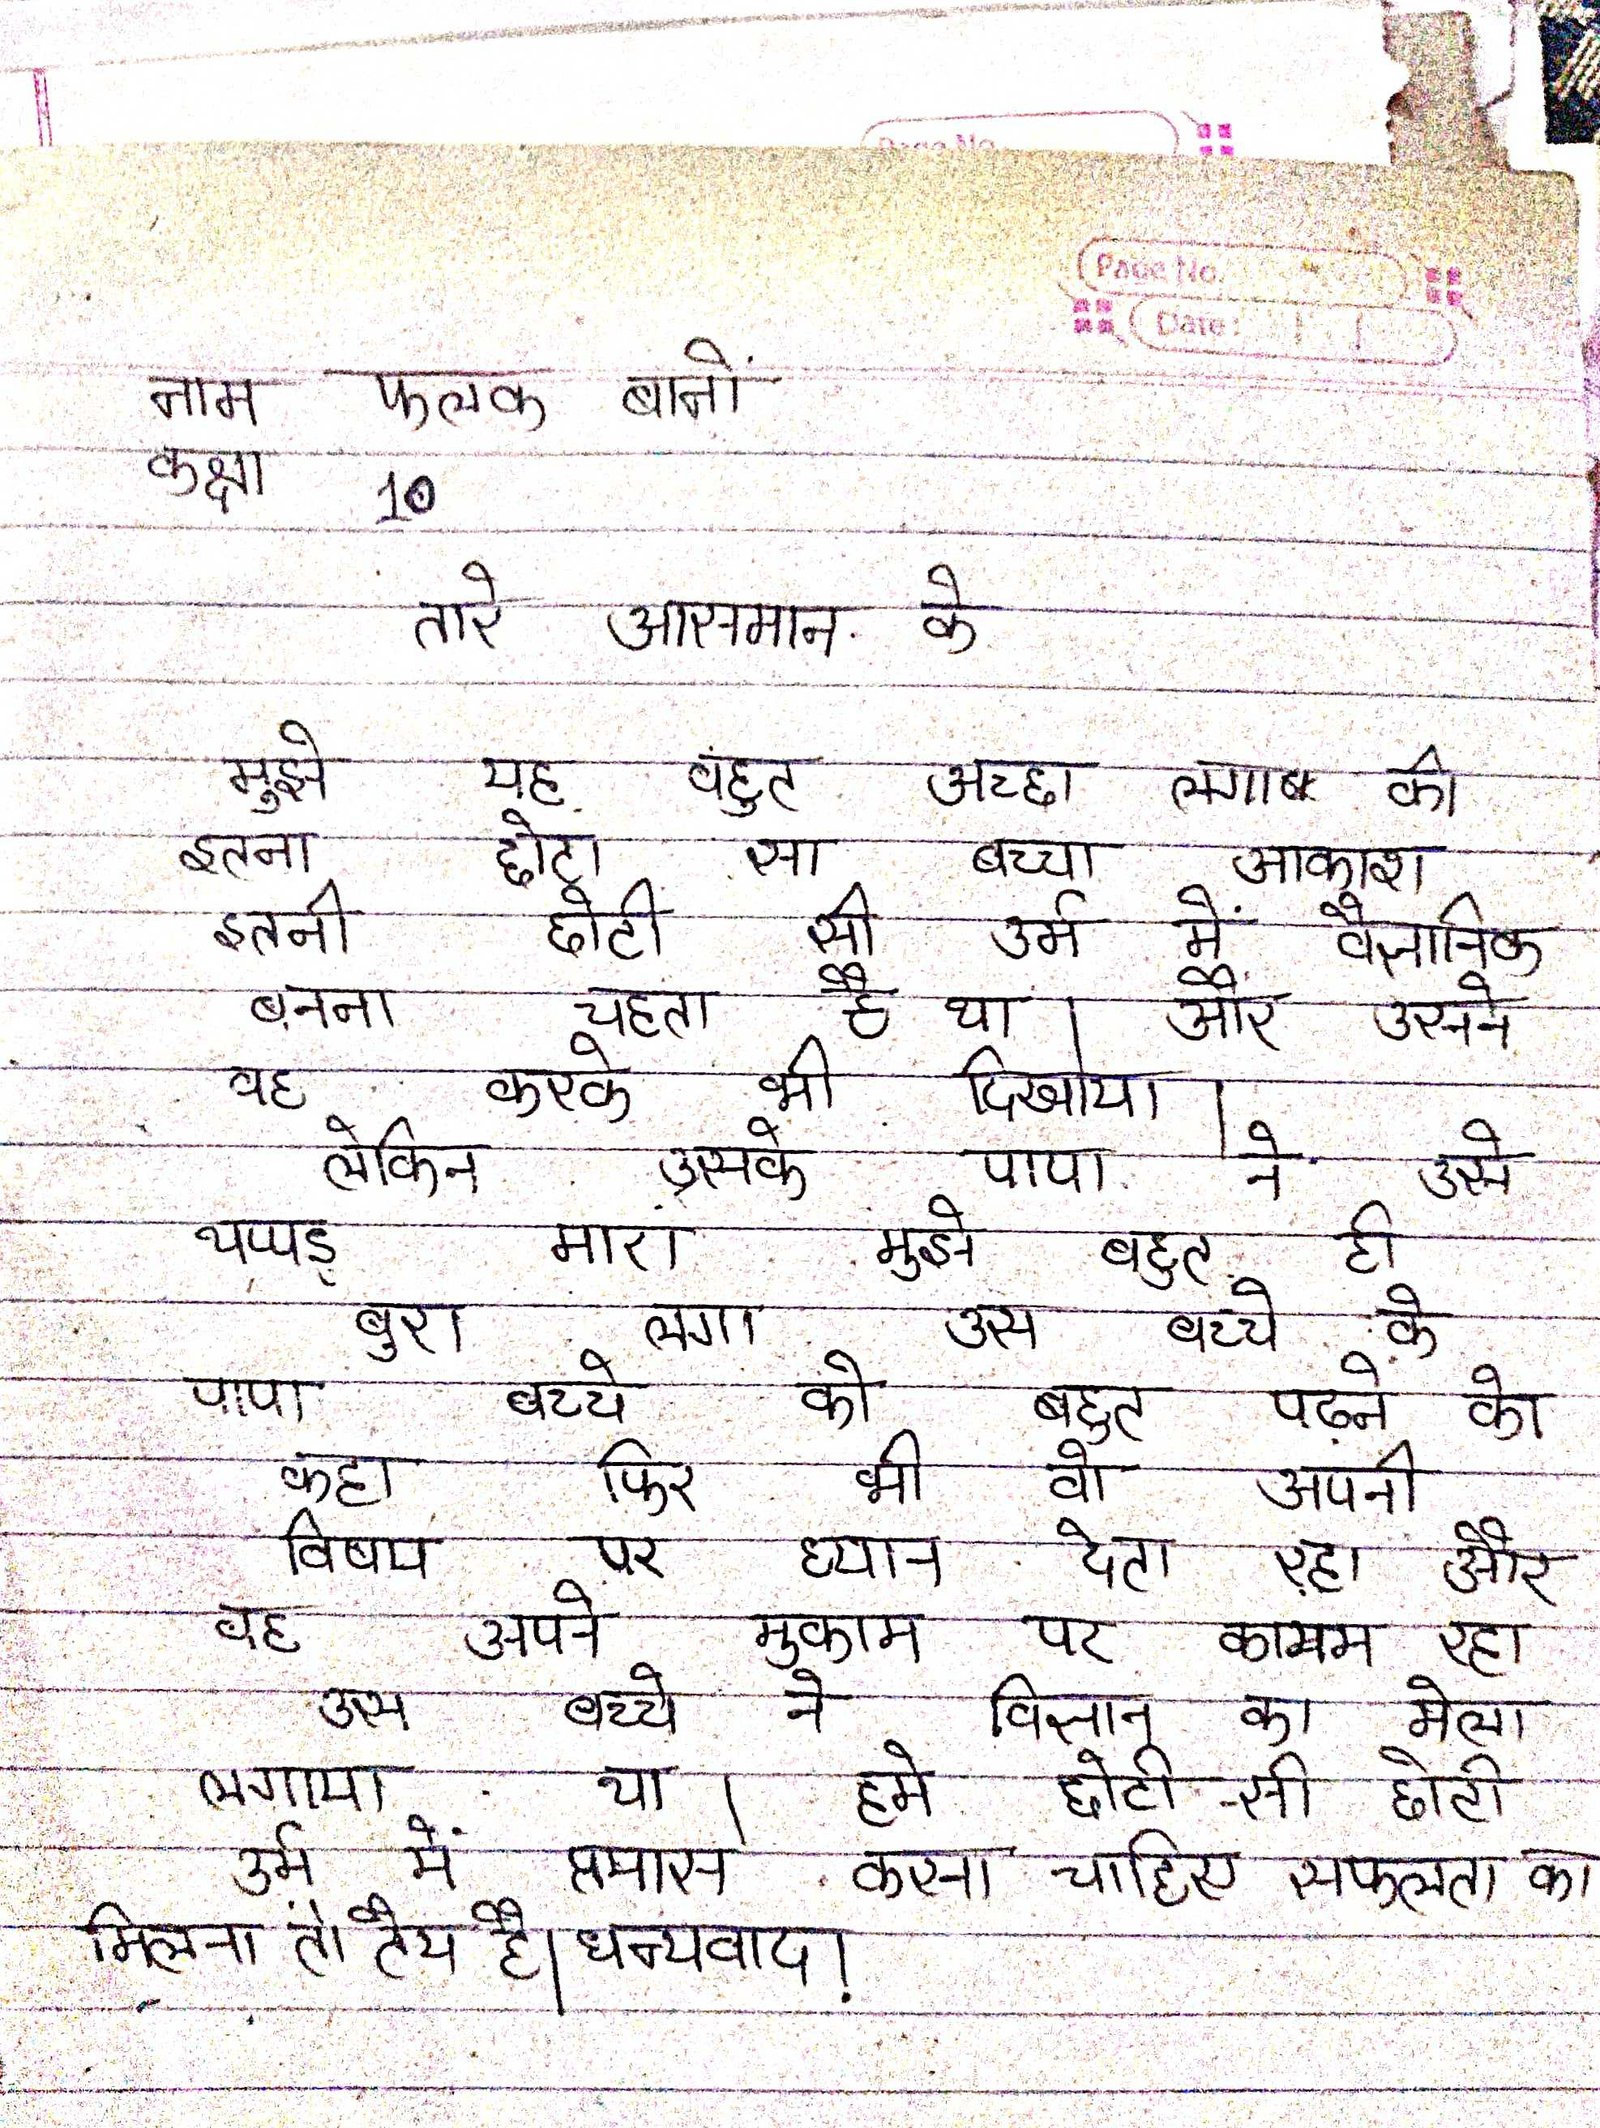 Page No.
Page No.
Date:
नाम फलक बानों
कक्षा 10
तारे आसमान के
मुझे यह बहुत अच्छा लगा की
इतना छोटा सा बच्चा आकाश
इतनी छोटी सी उर्म में वैज्ञानिक
बनना चहता है था। और उसने
वह करके भी दिखाया।
लेकिन उसके पापा ने उसे
थप्पड़ मारा मुझे बहुत ही
बुरा लगा उस बच्चे के
पापा बच्चे को बहुत पढ़ने को
कहा फिर भी वो अपनी
विषय पर ध्यान देता रहा और
वह अपने मुकाम पर कायम रहा
उस बच्चे ने विज्ञान का मेला
लगाया था। हमे छोटी-सी छोटी
उर्म में प्रयास करना चाहिए सफलता का
मिलना तो तैय है। धन्यवाद!